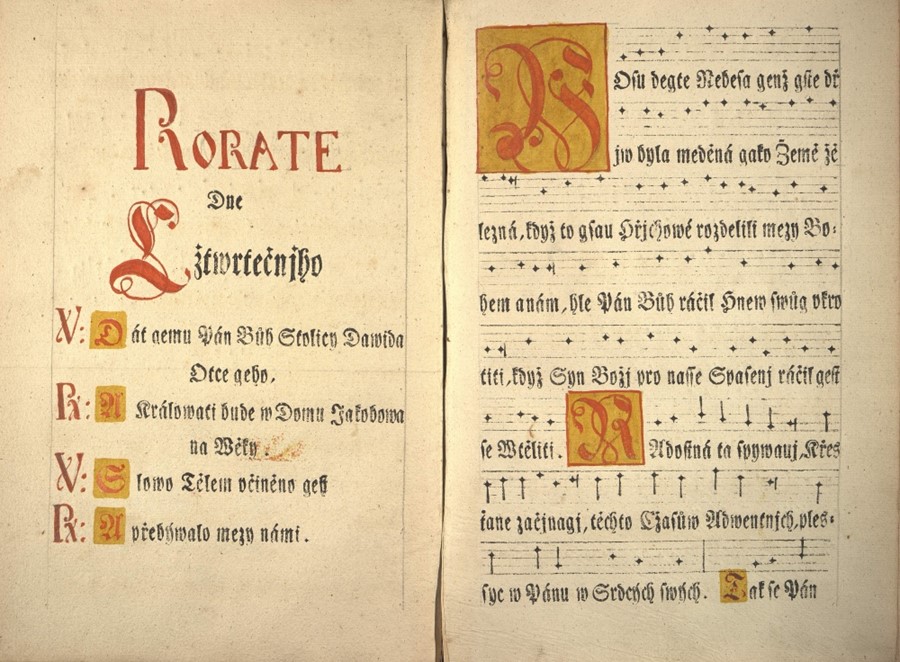 RORATE
Dne
Cžtwrtečnjho
V: Dát gemu Pán Bůh Stolicy Dawida
Otce geho,
R: A Králowati bude w Domu Jakobowa
na Wěky.
V: Slowo Tělem včiněno gest
R: A přebýwalo mezy námi.
ROsu degte Nebesa genž gste dř
jw byla meděná gako Země že
lezná, když to gsau Hřjchowé rozdelili mezy Bo:
hem anám, hle Pán Bůh ráčil Hnew swůg vkro
titi, když Syn Božj pro nasse Spasenj ráčil gest
se Wtěliti. RAdostná ta spywauj, Křes
ťane začjnagj, těchto Cžasůw Adwentnjch, ples:
syc w Pánu w Srdcých swých. Tak se Pán